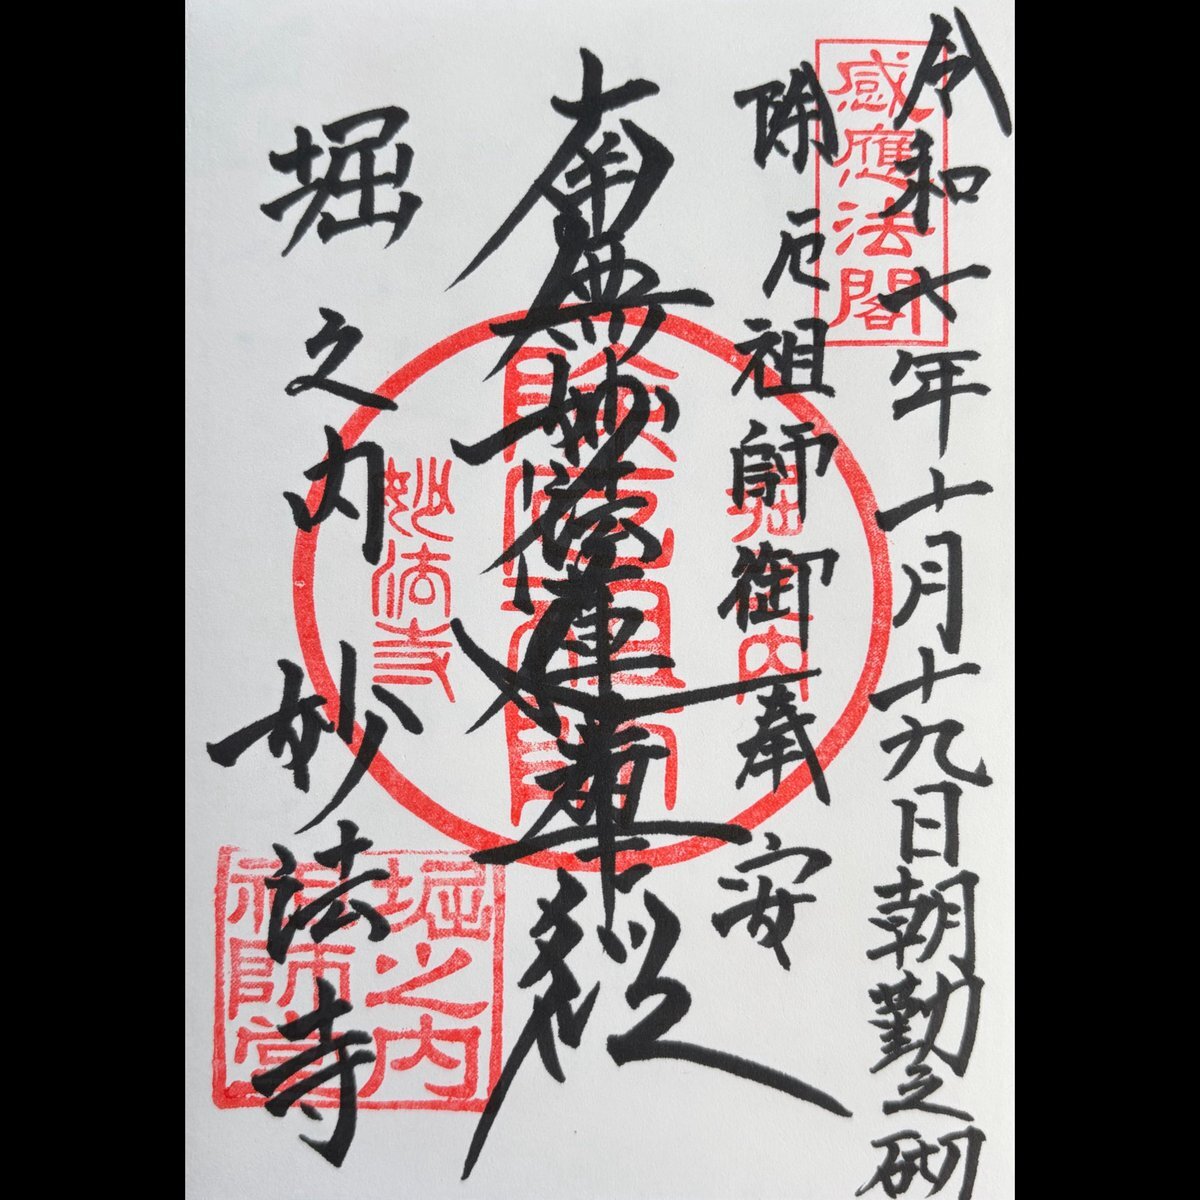 令和七年十月十九日朝勤之砌
感應法閣
除厄祖師御奉安
南無妙法蓮華経
堀之内
除厄祖師
妙法寺
堀之内妙法寺
堀之内
祖師堂